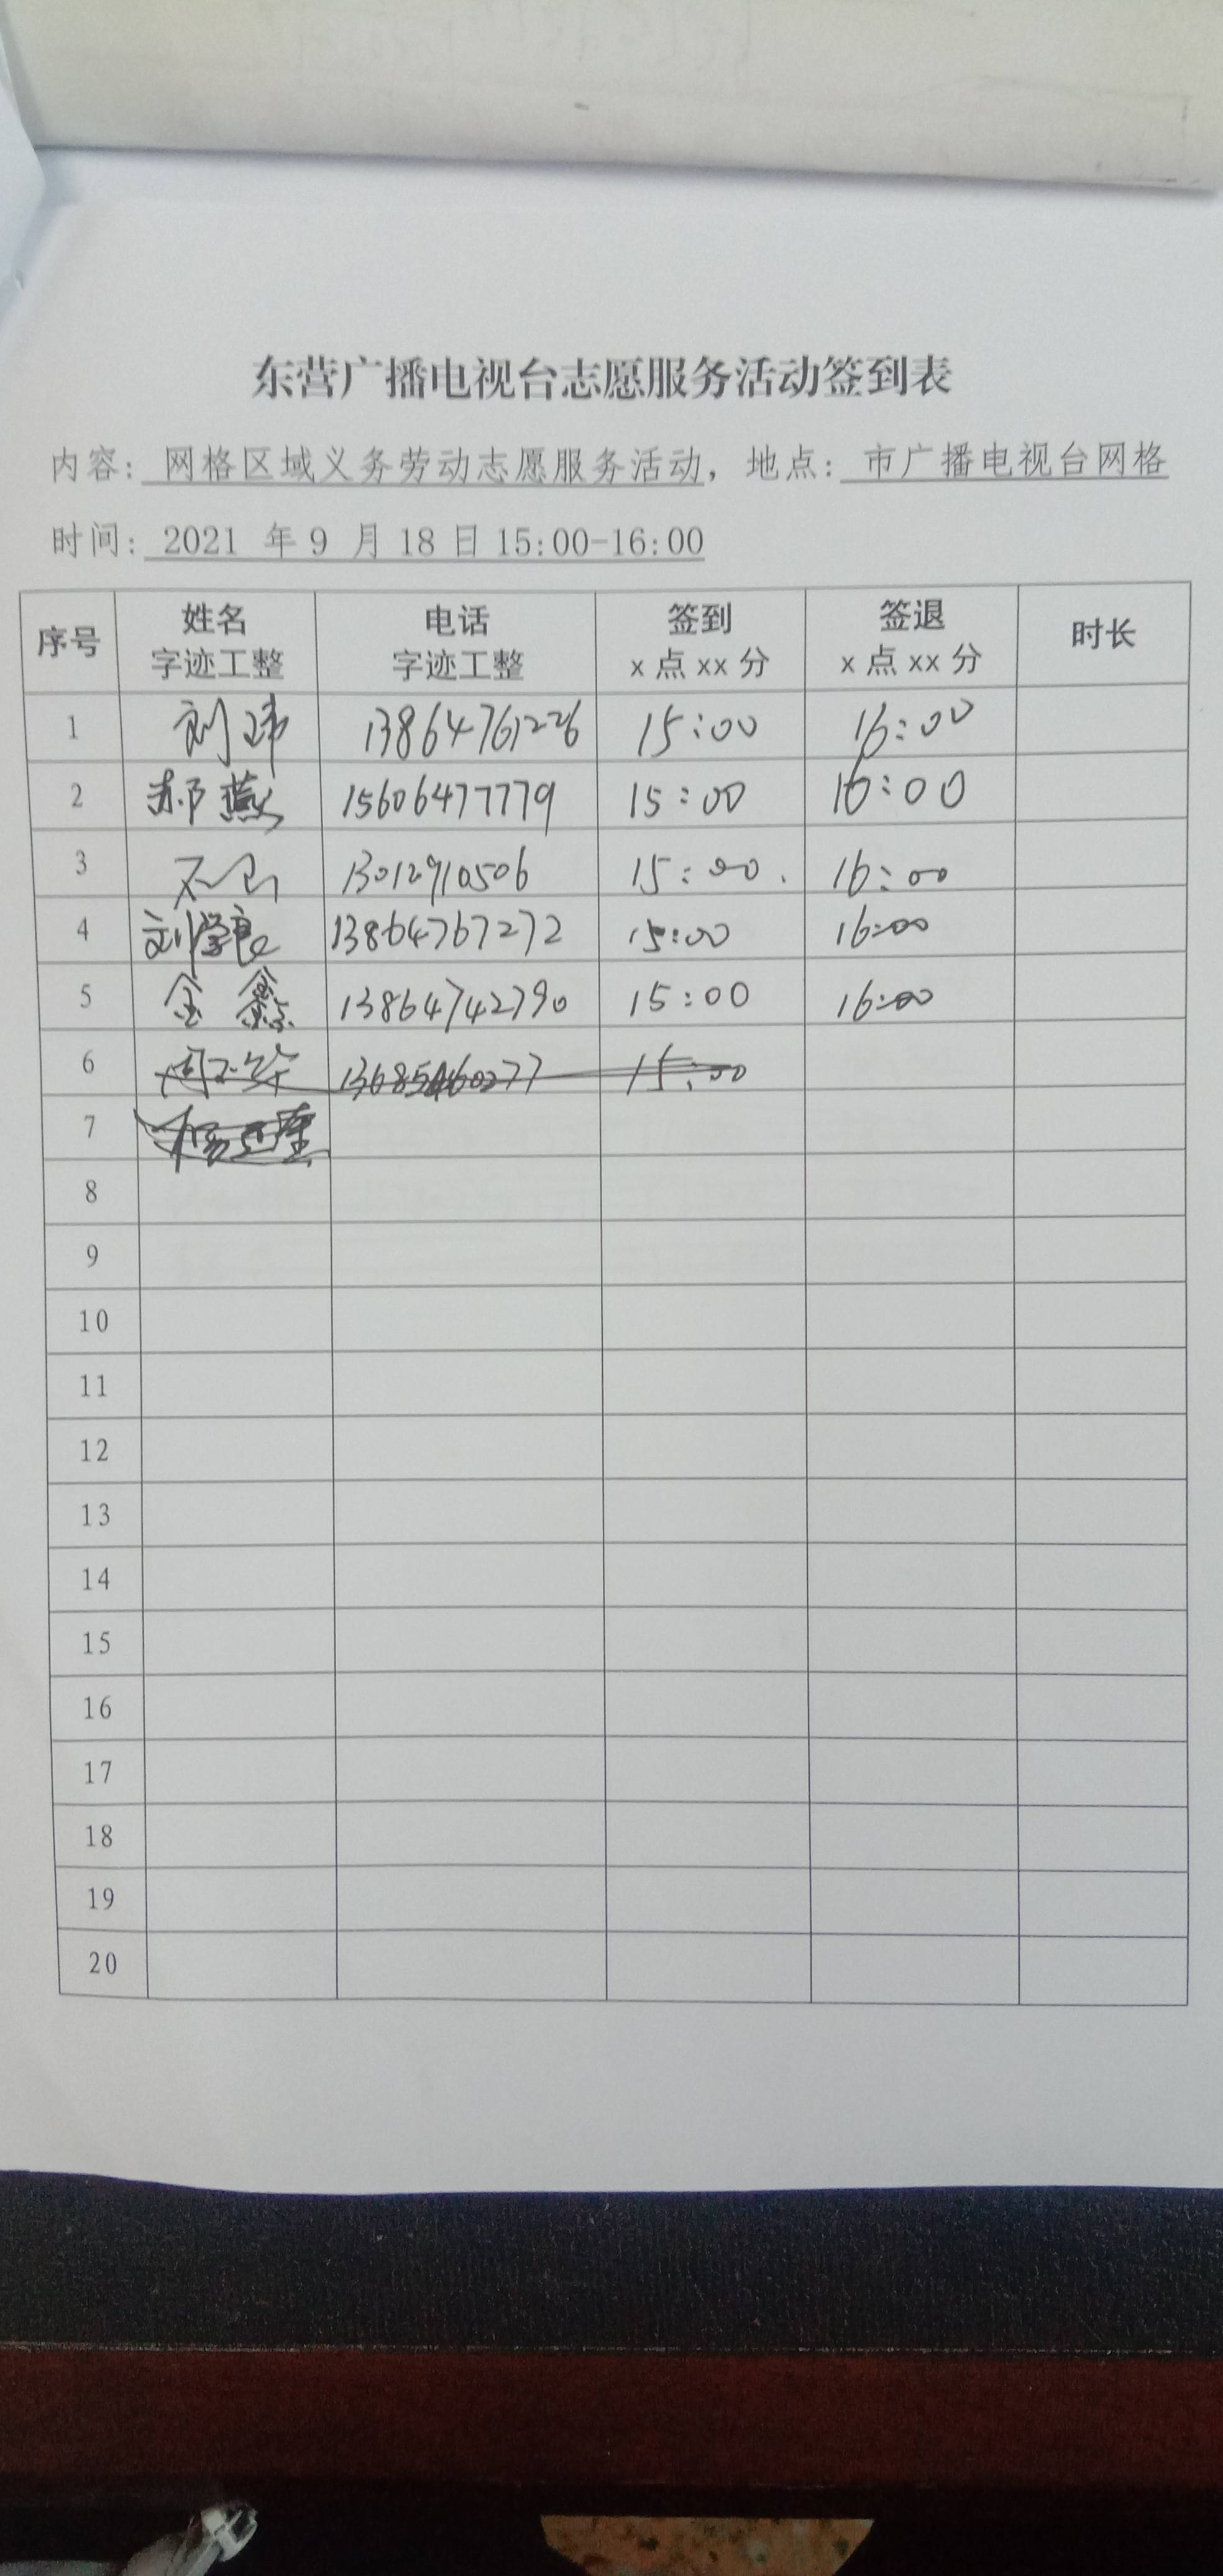 东营广播电视台志愿服务活动签到表
内容: 网格区域义务劳动志愿服务活动, 地点: 市广播电视台网格
时间: 2021 年 9 月 18 日 15:00-16:00
序号 姓名 字迹工整 电话 字迹工整 签到 x 点 xx 分 签退 x 点 xx 分 时长
1 刘玮 13864761226 15:00 16:00
2 郝燕 15606477779 15:00 16:00
3 13012910506 15:00 16:00
4 刘学良 13864767272 15:00 16:00
5 金鑫 13864742790 15:00 16:00
6 15:00
7
8
9
10
11
12
13
14
15
16
17
18
19
20